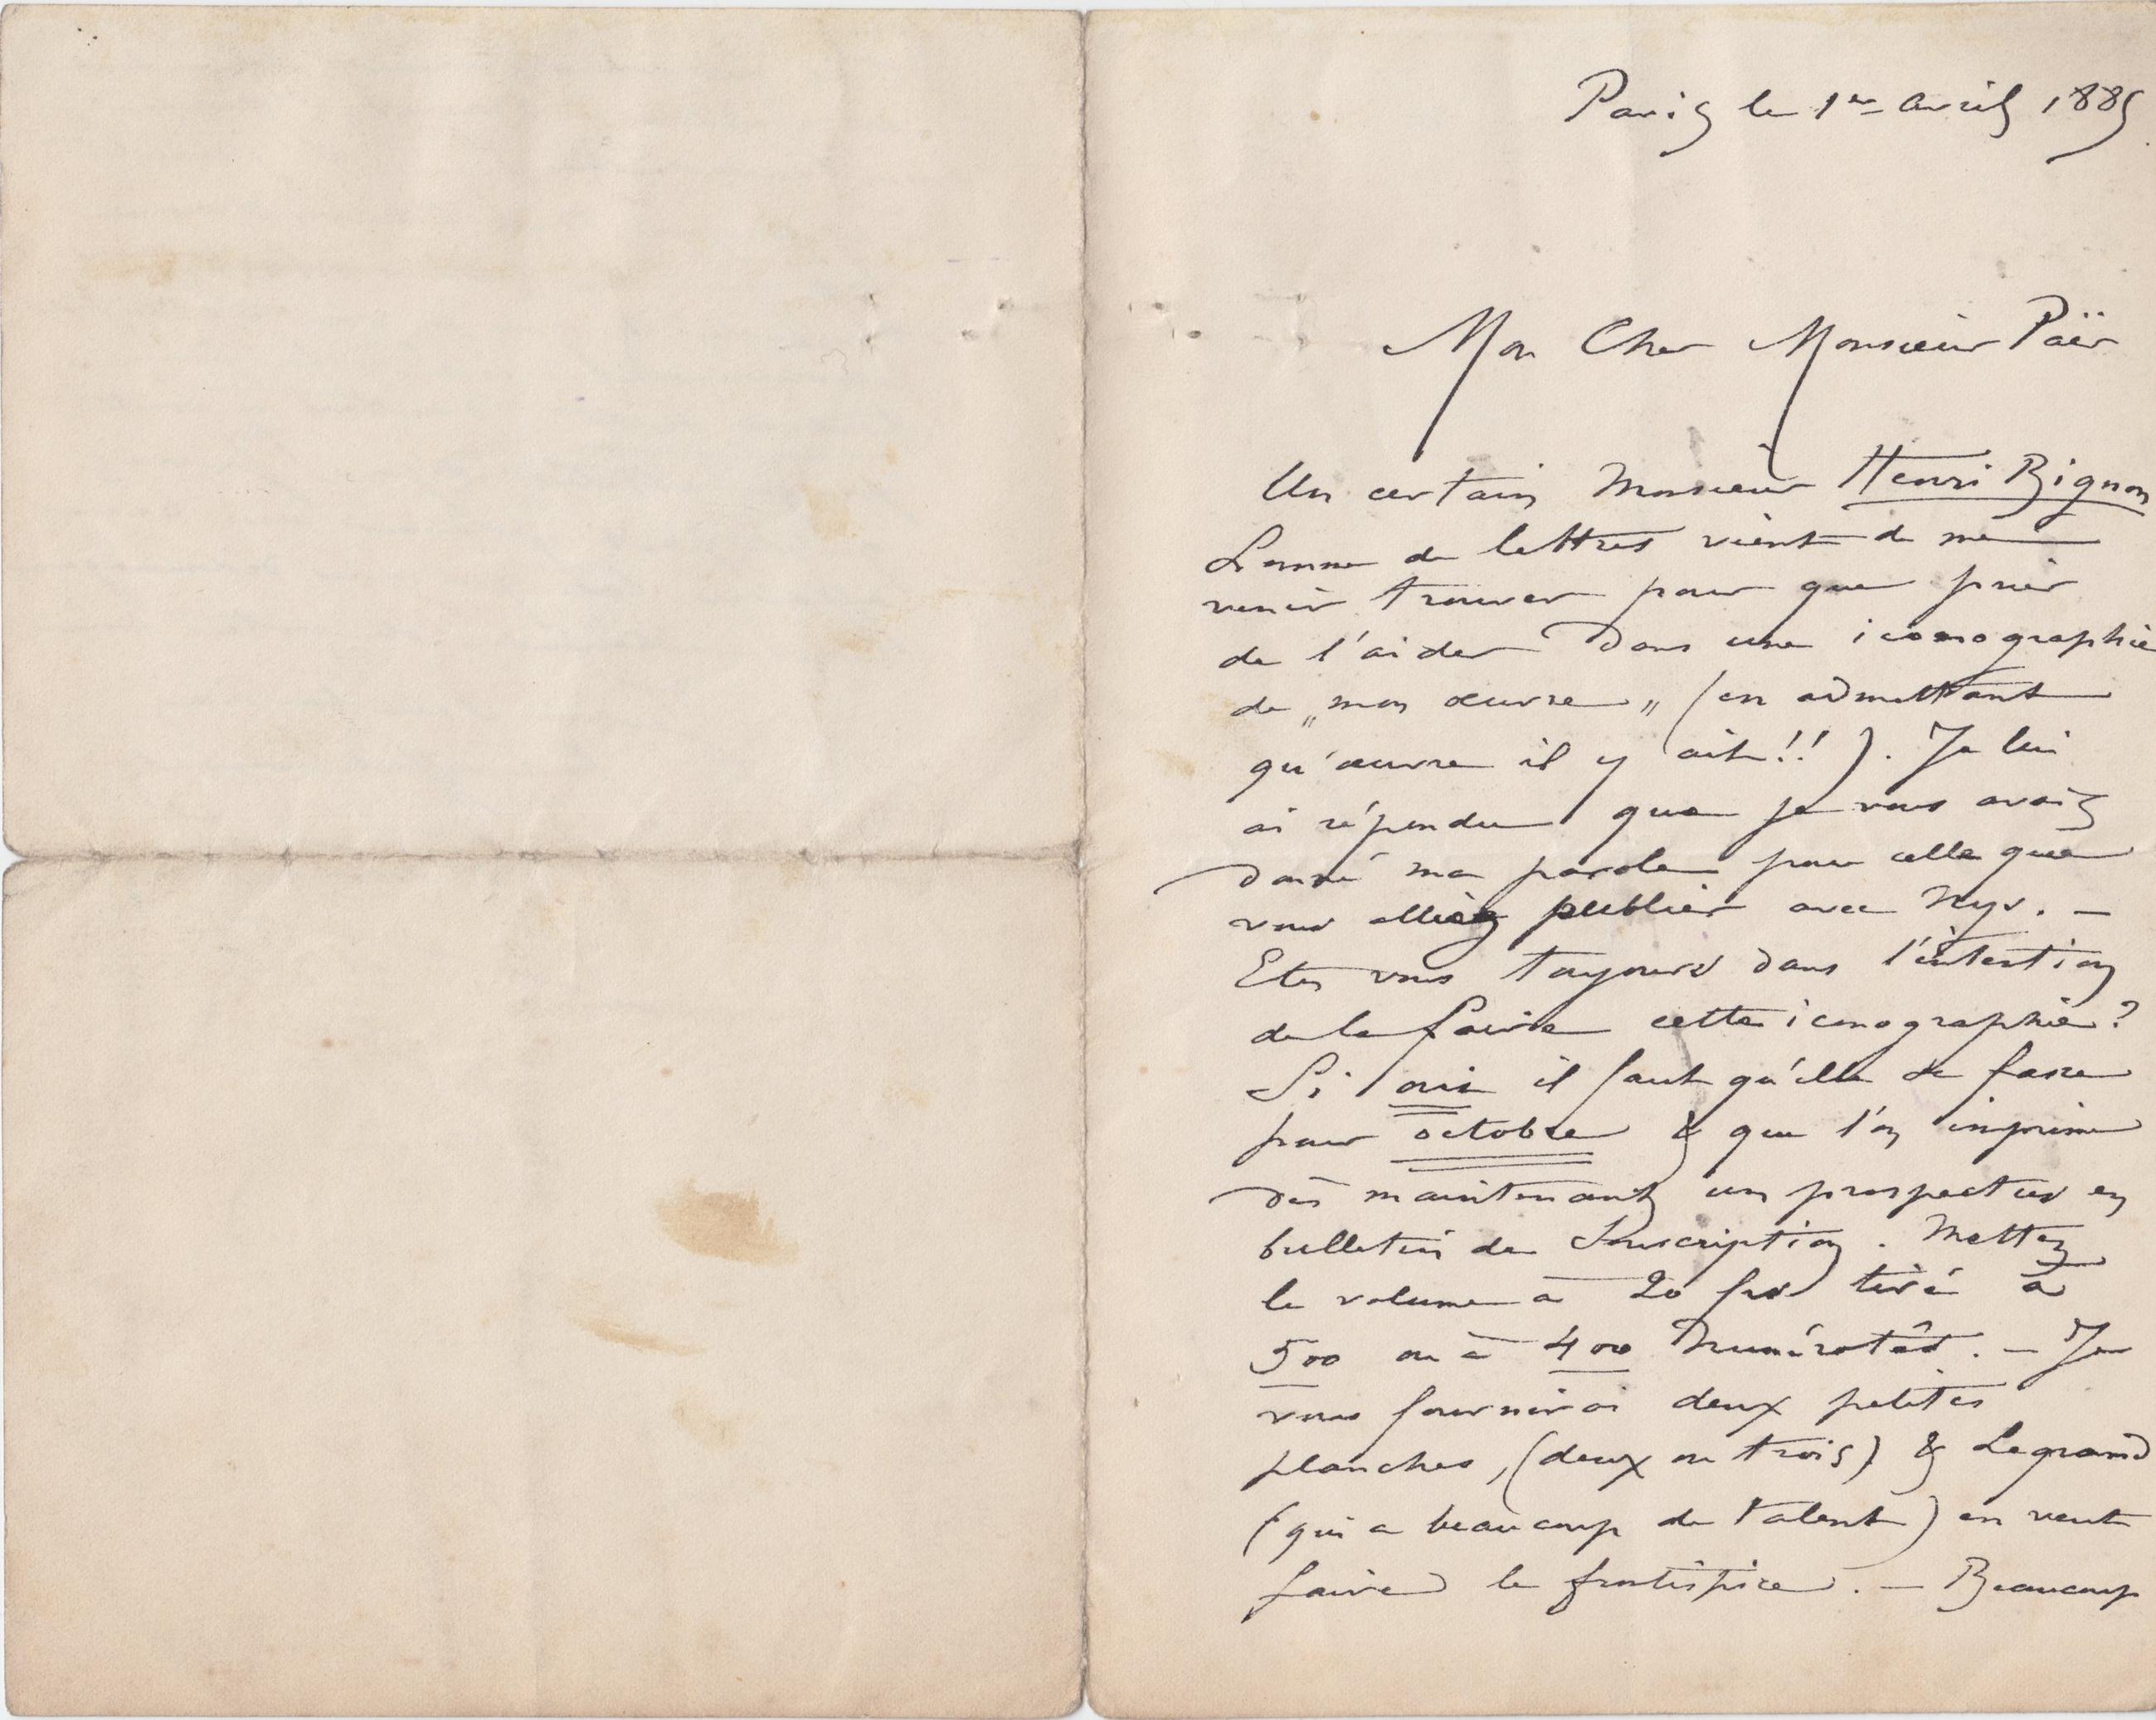 Paris le 1er avril 1885
Mon Cher Monsieur Païer
Un certain Monsieur Henri Bignon
homme de lettres vient de me
venir trouver pour que prier
de l'aider dans une iconographie
de „mon œuvre„ (en admettant
qu'œuvre il y ait!!). Je lui
ai répondu que je vous avais
donné ma parole pour celle que
vous alliez publier avec Nys. –
Etes vous toujours dans l'intention
de la faire cette iconographie?
Si oui il faut qu'elle se fasse
pour octobre & que l'on imprime
dès maintenant un prospectus en
bulletin de Souscription. Mettez
le volume à 20 frs tiré à
500 ou à 400 Numérotés. – Je
vous fournirai deux petites
planches, (deux ou trois) & Legrand
(qui a beaucoup de talent) en veut
faire le frontispice. – Beaucoup